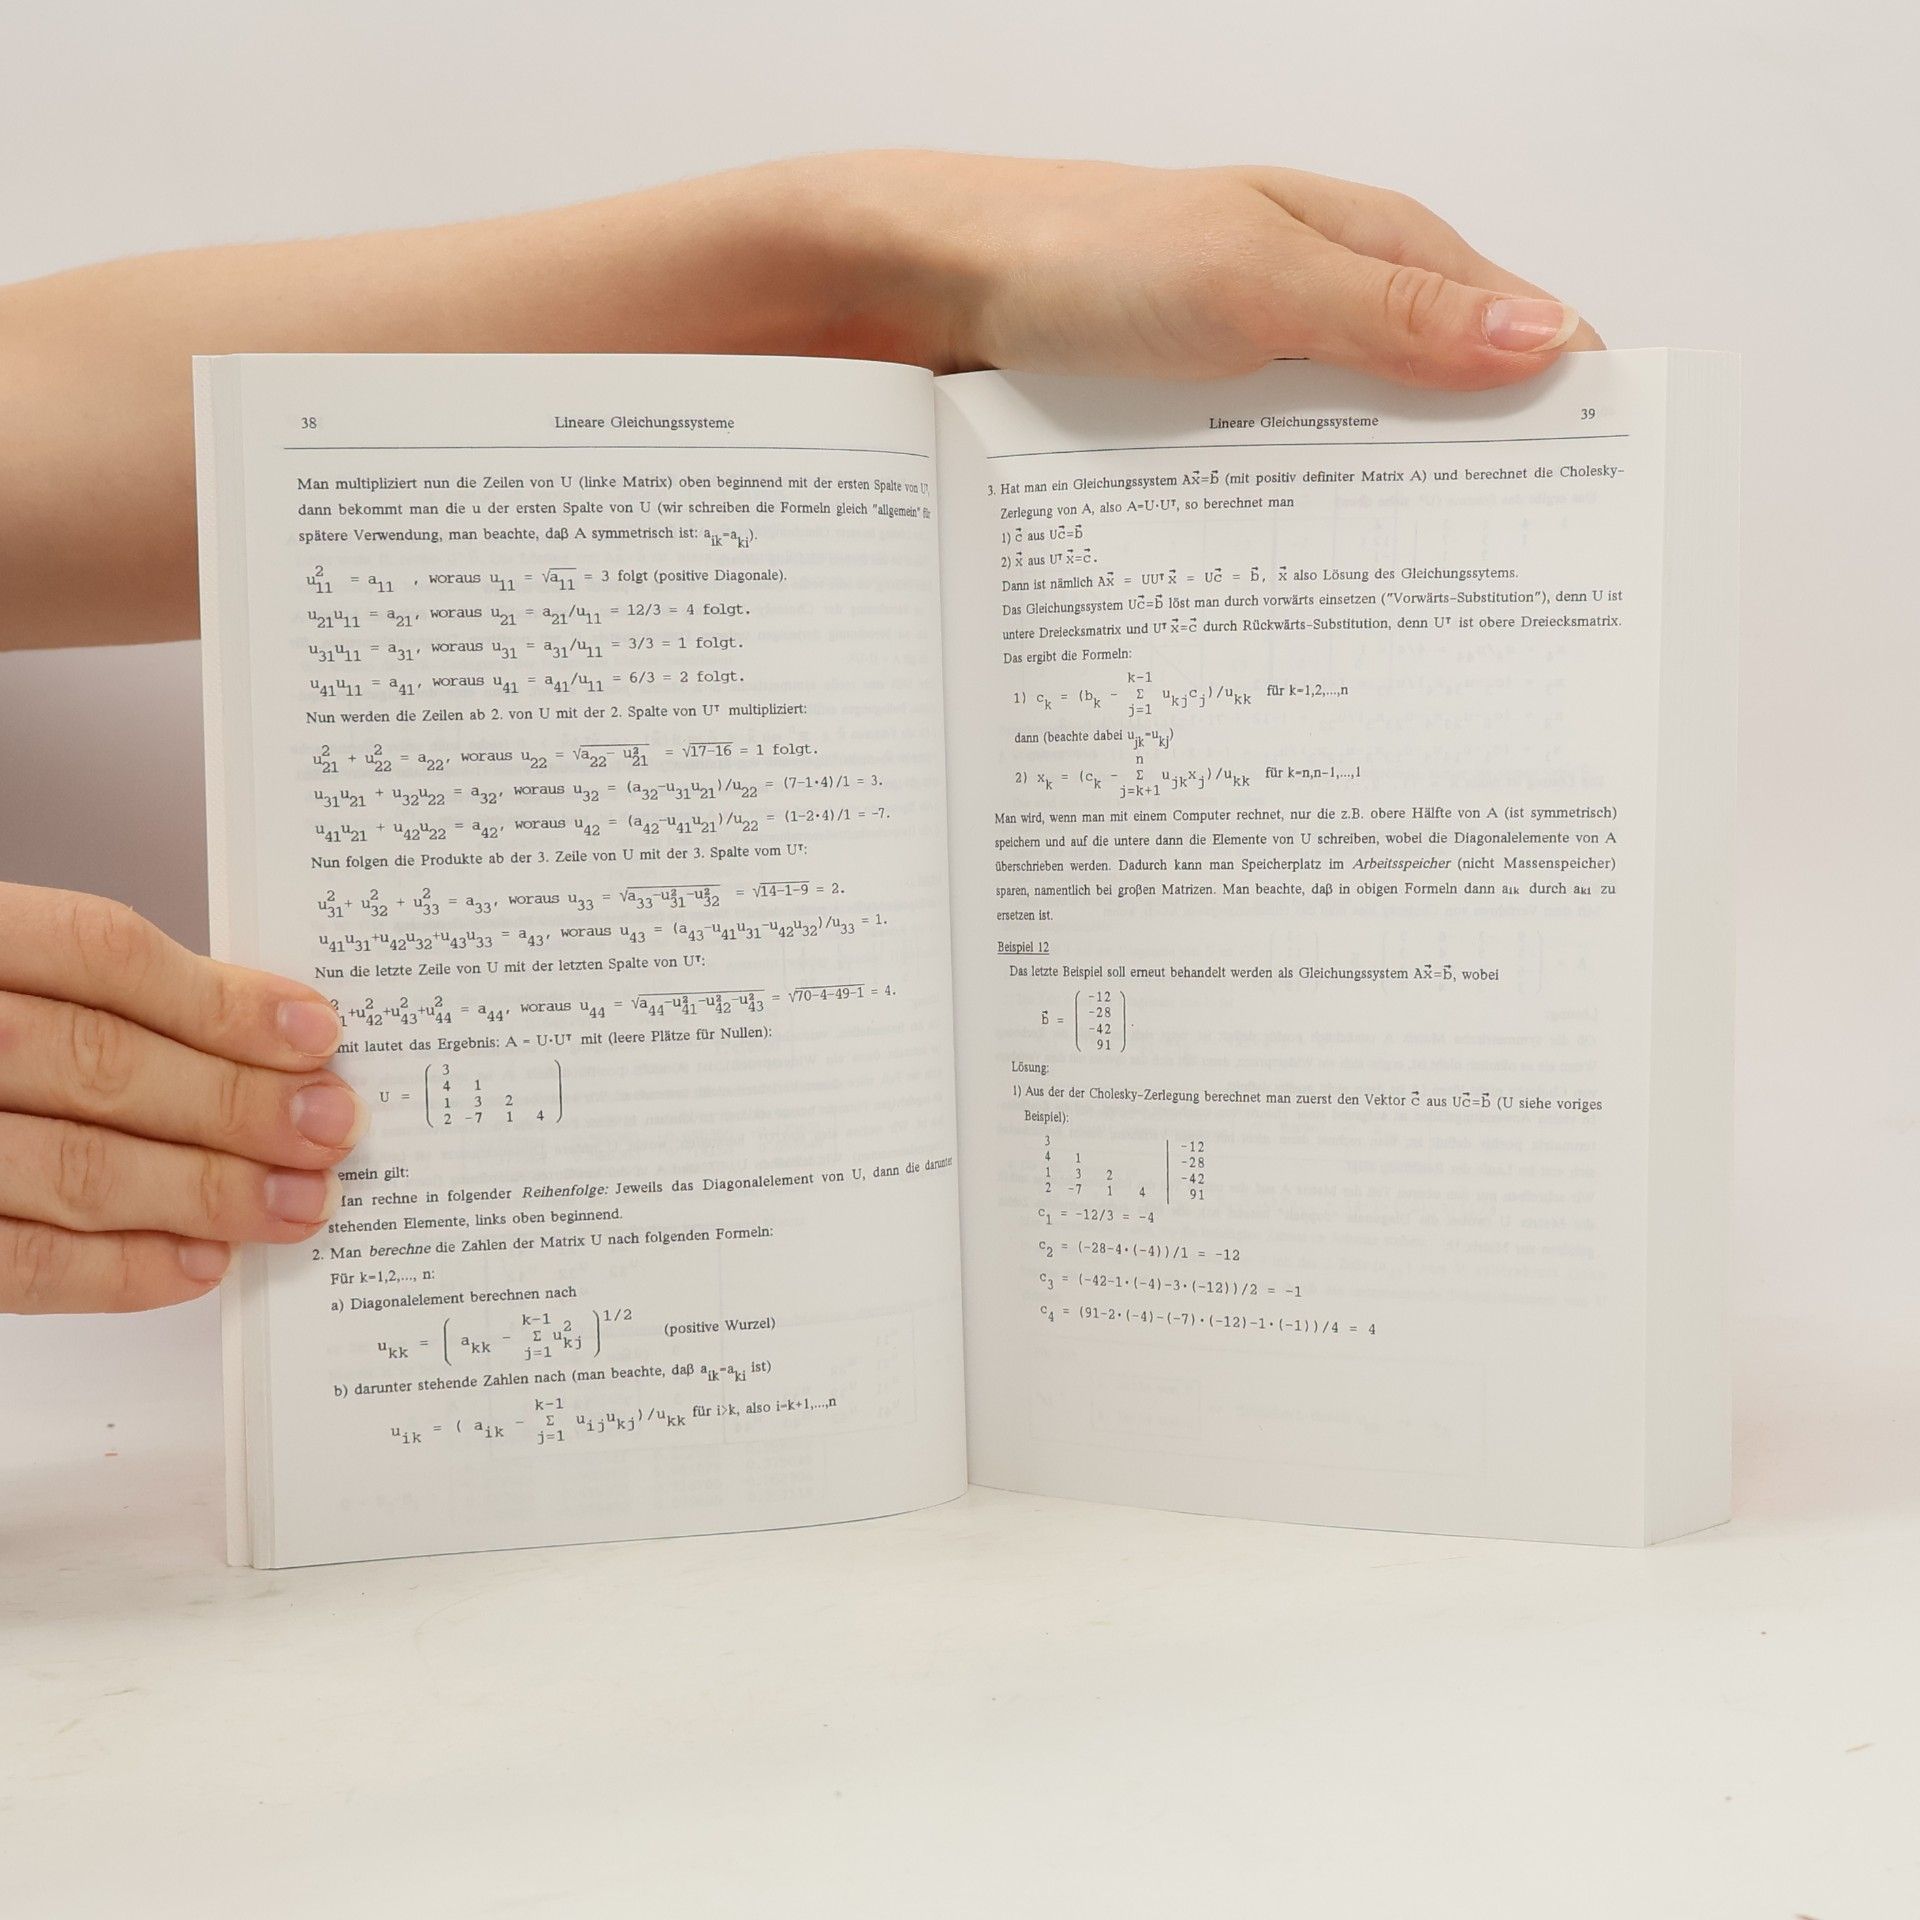 38
Lineare Gleichungssysteme
Man multipliziert nun die Zeilen von U (linke Matrix) oben beginnend mit der ersten Spalte von Uᵀ,
dann bekommt man die u der ersten Spalte von U (wir schreiben die Formeln gleich "allgemein" für
spätere Verwendung, man beachte, daß A symmetrisch ist: a_ik=a_ki).
u_11^2 = a_11 , woraus u_11 = √a_11 = 3 folgt (positive Diagonale).
u_21u_11 = a_21, woraus u_21 = a_21/u_11 = 12/3 = 4 folgt.
u_31u_11 = a_31, woraus u_31 = a_31/u_11 = 3/3 = 1 folgt.
u_41u_11 = a_41, woraus u_41 = a_41/u_11 = 6/3 = 2 folgt.
Nun werden die Zeilen ab 2. von U mit der 2. Spalte von Uᵀ multipliziert:
u_21^2 + u_22^2 = a_22, woraus u_22 = √(a_22 - u_21^2) = √17-16 = 1 folgt.
u_31u_21 + u_32u_22 = a_32, woraus u_32 = (a_32-u_31u_21)/u_22 = (7-1·4)/1 = 3.
u_41u_21 + u_42u_22 = a_42, woraus u_42 = (a_42-u_41u_21)/u_22 = (1-2·4)/1 = -7.
Nun folgen die Produkte ab der 3. Zeile von U mit der 3. Spalte vom Uᵀ:
u_31^2 + u_32^2 + u_33^2 = a_33, woraus u_33 = √(a_33-u_31^2-u_32^2) = √14-1-9 = 2.
u_41u_31+u_42u_32+u_43u_33 = a_43, woraus u_43 = (a_43-u_41u_31-u_42u_32)/u_33 = 1.
Nun die letzte Zeile von U mit der letzten Spalte von Uᵀ:
+u_42^2+u_43^2+u_44^2 = a_44, woraus u_44 = √(a_44-u_41^2-u_42^2-u_43^2) = √70-4-49-1 = 4.
mit lautet das Ergebnis: A = U·Uᵀ mit (leere Plätze für Nullen):
3
4 1
U = 1 3 2
2 -7 1 4
emein gilt:
an rechne in folgender Reihenfolge: Jeweils das Diagonalelement von U, dann die darunter
stehenden Elemente, links oben beginnend.
2. Man berechne die Zahlen der Matrix U nach folgenden Formeln:
Für k=1,2,..., n:
a) Diagonalelement berechnen nach
u_kk = ( a_kk - Σ_{j=1}^{k-1} u_kj^2 )^1/2 (positive Wurzel)
b) darunter stehende Zahlen nach (man beachte, daß a_ik=a_ki ist)
u_ik = ( a_ik - Σ_{j=1}^{k-1} u_ij u_kj)/u_kk für i>k, also i=k+1,...,n
Lineare Gleichungssysteme
39
3. Hat man ein Gleichungssystem Ax⃗=b⃗ (mit positiv definiter Matrix A) und berechnet die Cholesky-
Zerlegung von A, also A=U·Uᵀ, so berechnet man
1) c⃗ aus Uc⃗=b⃗
2) x⃗ aus Uᵀx⃗=c⃗.
Dann ist nämlich Ax⃗ = UUᵀx⃗ = Uc⃗ = b⃗, x⃗ also Lösung des Gleichungssytems.
Das Gleichungssystem Uc⃗=b⃗ löst man durch vorwärts einsetzen ("Vorwärts-Substitution"), denn U ist
untere Dreiecksmatrix und Uᵀx⃗=c⃗ durch Rückwärts-Substitution, denn Uᵀ ist obere Dreiecksmatrix.
Das ergibt die Formeln:
1) c_k = (b_k - Σ_{j=1}^{k-1} u_kj c_j)/u_kk für k=1,2,...,n
dann (beachte dabei u_jk=u_kj)
2) x_k = (c_k - Σ_{j=k+1}^{n} u_jk x_j)/u_kk für k=n,n-1,...,1
Man wird, wenn man mit einem Computer rechnet, nur die z.B. obere Hälfte von A (ist symmetrisch)
speichern und auf die untere dann die Elemente von U schreiben, wobei die Diagonalelemente von A
überschrieben werden. Dadurch kann man Speicherplatz im Arbeitsspeicher (nicht Massenspeicher)
sparen, namentlich bei großen Matrizen. Man beachte, daß in obigen Formeln dann a_ik durch a_ki zu
ersetzen ist.
Beispiel 12
Das letzte Beispiel soll erneut behandelt werden als Gleichungssystem Ax⃗=b⃗, wobei
-12
b⃗ = -28
-42
91 .
Lösung:
1) Aus der der Cholesky-Zerlegung berechnet man zuerst den Vektor c⃗ aus Uc⃗=b⃗ (U siehe voriges
Beispiel):
3 | -12
4 1 | -28
1 3 2 | -42
2 -7 1 4 | 91
c_1 = -12/3 = -4
c_2 = (-28-4·(-4))/1 = -12
c_3 = (-42-1·(-4)-3·(-12))/2 = -1
c_4 = (91-2·(-4)-(-7)·(-12)-1·(-1))/4 = 4